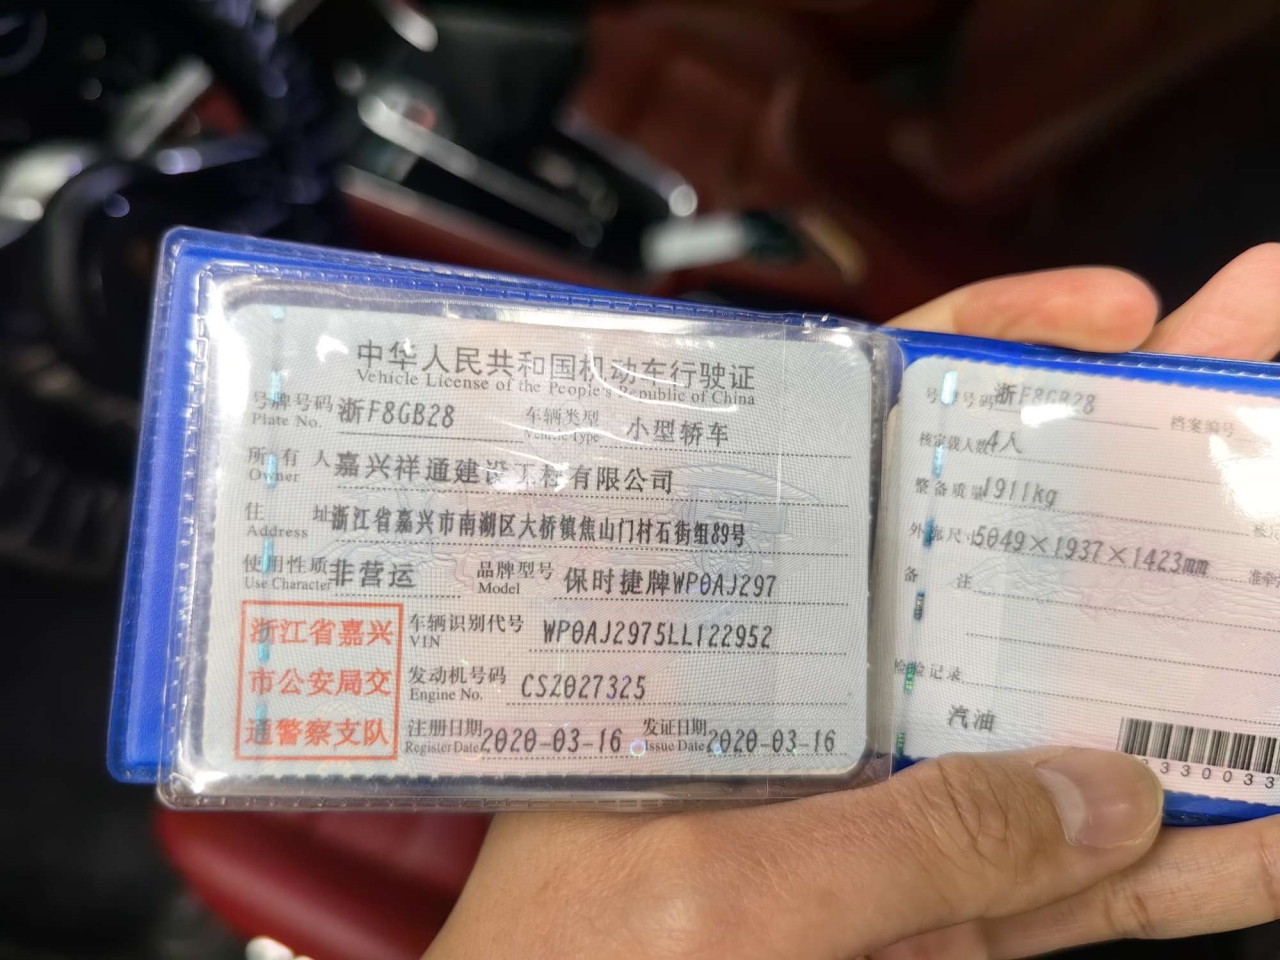 中华人民共和国机动车行驶证
Vehicle License of the People's Republic of China
号牌号码 浙F8GB28 车辆类型 小型轿车
Plate No. Vehicle Type
所有人 嘉兴祥通建设工程有限公司
Owner
住址 浙江省嘉兴市南湖区大桥镇焦山门村石街组89号
Address
使用性质 非营运 品牌型号 保时捷牌WP0AJ297
Use Character Model
浙江省嘉兴
市公安局交
通警察支队
车辆识别代号 WP0AJ2975LL122952
VIN
发动机号码 CSZ027325
Engine No.
注册日期 2020-03-16 发证日期 2020-03-16
Register Date Issue Date
号牌号码 浙F8GB28 档案编号
核定载人数 4人
整备质量 1911kg
外廓尺寸 5049×1937×1423mm
备注
检验记录
汽油
330033